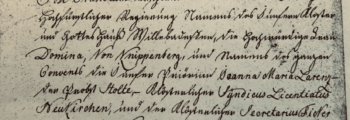 Hochfürstlicher Regierung Namens des Jungfern Kloster
und Gottes Hauß Willebadessen, die Hochwürdige Frau
Domina, Von Knippenberg, und Namens des gantzen
Convents die Jungfer Priorin Joanna Maria
der Probst Nolte, Klosterlicher Syndicus Licentiatus
Neukirchen, und der Klosterlicher Secretarius